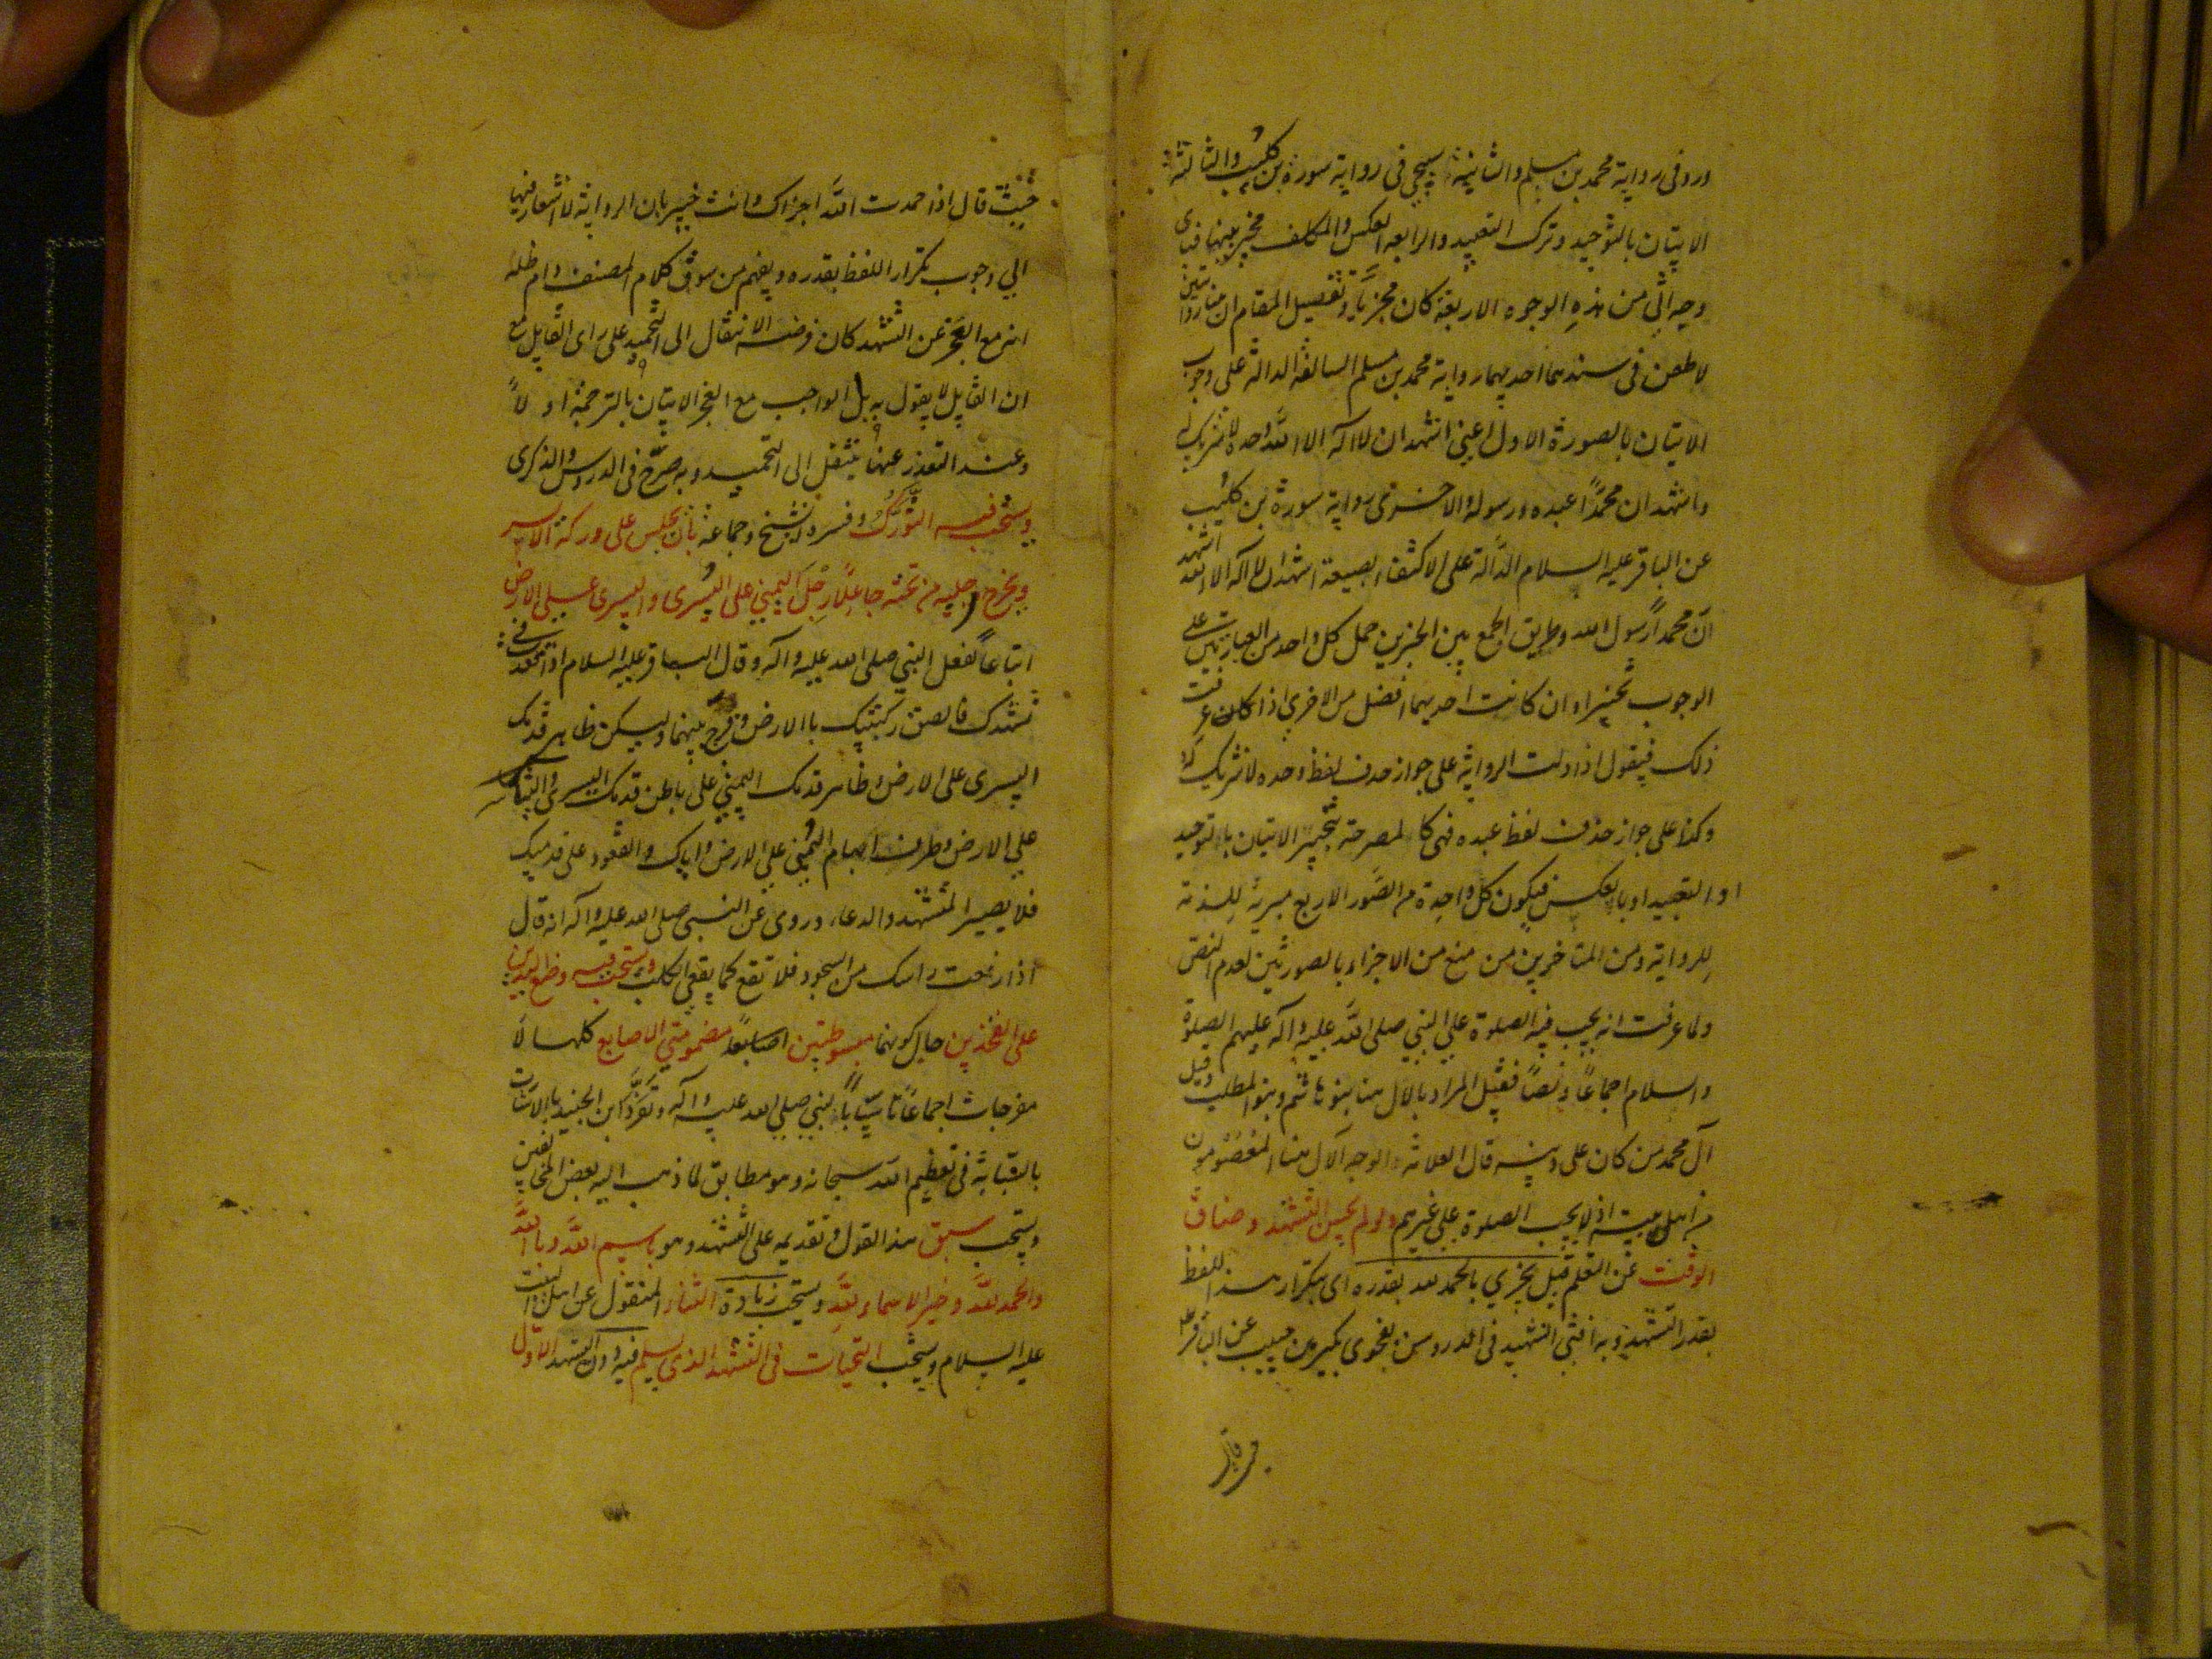 ورد فى رواية محمد بن مسلم والثانية سيجى فى رواية سورة بن كليب والثالثة
الاتيان بالتوحيد وترك التعبيد والرابعه العكس والمكلف مخير بينها فباى
وجه اتى من هذه الوجوه الاربعة كان مجزيا وتفصيل المقام ان هنا روايتين
لا طعن فى سندهما احديهما رواية محمد بن مسلم السالفة الدالة على وجوب
الاتيان بالصورة الاولى اعنى اشهد ان لا اله الا الله وحده لا شريك له
واشهد ان محمدا عبده ورسوله والاخرى رواية سورة بن كليب
عن الباقر عليه السلام الدالة على الاكتفاء بصيغة اشهد ان لا اله الا الله اشهد
ان محمدا رسول الله وطريق الجمع بين الخبرين حمل كل واحد من العبارتين على
الوجوب تخييرا وان كانت احديهما افضل من الاخرى اذا عرفت
ذلك فيقول اذا دلت الرواية على جواز حذف لفظ وحده لا شريك له
وكذا على جواز حذف لفظ عبده فهى كالمصرحة بتخيير الاتيان بالتوحيد
او التعبيد او بالعكس فيكون كل واحدة من الصور الاربع مبرية للذمة
للرواية ومن المتاخرين من منع من الاجزاء بالصورتين لعدم النص
ولما عرفت انه يجب فيه الصلوة على النبي صلى الله عليه واله عليهم الصلوة
والسلام اجماعا ونصا فقيل المراد بالآل هنا بنو هاشم وبنو المطلب وقيل
آل محمد من كان على دينه قال العلامة والوجه الآل هنا المعصومون
من اهل بيته اذ لا يجب الصلوة على غيرهم ولو لم يحسن التشهد وضاق
الوقت عن التعلم قيل يجزي بالحمد لله بقدره اى بتكرار هذا اللفظ
بقدر التشهد وبه افتى الشهيد فى الدروس بفحوى بكير بن حبيب عن الباقر ع
حيث قال اذا حمدت الله اجزاك وانت خبير بان الرواية لا اشعار فيها
الى وجوب تكرار اللفظ بقدره ويفهم من سوق كلام المصنف دام ظله
انه مع العجز عن التشهد كان فرضه الانتقال الى التحميد على راى القايل مع
ان القايل لا يقول به بل الواجب مع العجز الاتيان بالترجمة اولا
وعند التعذر عنها ينتقل الى التحميد وبه صرح فى الدروس والذكرى
ويستحب فيه التورك وفسره الشيخ وجماعة بان يجلس على وركه الايسر
ويخرج رجليه من تحته جاعلا رجل اليمنى على اليسرى واليسرى على الارض
اتباعا لفعل النبي صلى الله عليه واله وقال الباقر عليه السلام اذا قعدت فى
تشهدك فالصق ركبتيك بالارض وفرج بينهما وليكن ظاهر قدمك
اليسرى على الارض وظاهر قدمك اليمنى على باطن قدمك اليسرى واليتاك
على الارض وطرف ابهام اليمنى على الارض واياك والقعود على قدميك
فلا يصير للتشهد والدعاء وروى عن النبى صلى الله عليه واله انه قال
اذا رفعت راسك من السجود فلا تقع كما يقعى الكلب ويستحب فيه وضع اليدين
على الفخذين حال كونهما مبسوطتين اصابعه مضمومتى الاصابع كلها لا
مفرجات اجماعا تاسيا بالنبى صلى الله عليه واله وتفرد ابن الجنيد بالاشارة
بالسبابة فى تعظيم الله سبحانه وهو مطابق لما ذهب اليه بعض المخالفين
ويستحب سبق هذا القول وتقديمه على التشهد وهو باسم الله وبالله
والحمد لله وخير الاسماء لله ويستحب زيادة الثناء المنقول عن اهل البيت
عليه السلام ويستحب التحيات فى التشهد الذى يسلم فيه دون التشهد الاول